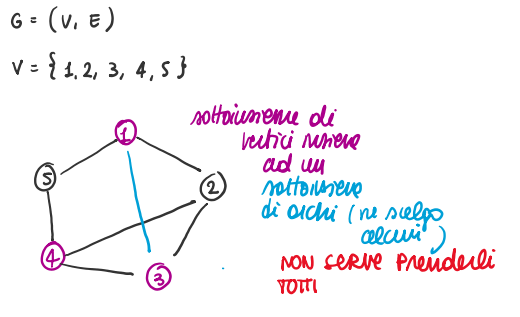 G = (V, E)
V = {1, 2, 3, 4, 5}
1
sottoinsieme di
vertici insieme
ad un
5
2
sottoinsieme
di archi (ne scelgo
alcuni)
4
3
NON SERVE PRENDERLI
TUTTI